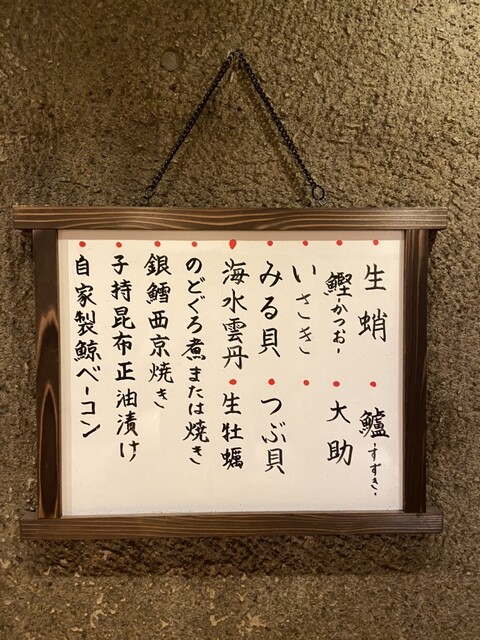 生蛸 ・鱸-すずき-
鰹-かつお- ・大助
・いさき ・
・みる貝 ・つぶ貝
・海水雲丹 ・生牡蠣
・のどぐろ煮または焼き
・銀鱈西京焼き
・子持昆布正油漬け
・自家製鯨ベーコン